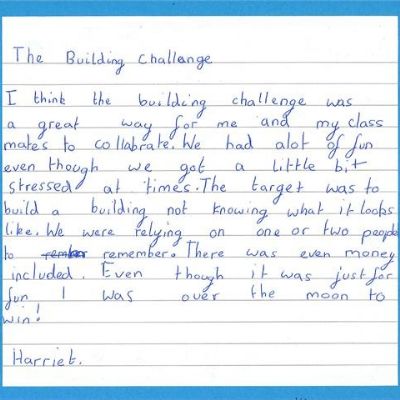 The Building Challenge
I think the building challenge was
a great way for me and my class
mates to collabrate. We had alot of fun
even though we got a little bit
stressed at times. The target was to
build a building not knowing what it looks
like. We were relying on one or two people
to remember. There was even money
included. Even though it was just for
fun I was over the moon to
win!
Harriet.